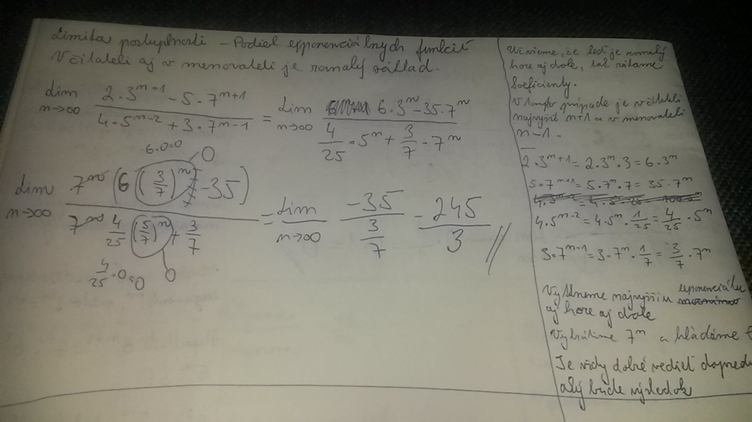 Limita postupnosti - Podiel exponenciálnych funkcií
V čitateli aj v menovateli je rovnaký základ.
lim n→∞ (2·3^{n+1} - 5·7^{n+1}) / (4·5^{n-2} + 3·7^{n-1}) = lim n→∞ (6·3^n - 35·7^n) / (4/25 · 5^n + 3/7 · 7^n)
6·0=0 0
lim n→∞ 7^n (6 (3/7)^n - 35) / 7^n 4/25 (5/7)^n + 3/7 = lim n→∞ -35 / (3/7) - 245/3 //
4/25 ·0=0 0
je rovnaký
hore aj dole, tak rátame
koeficienty.
V tomto prípade je v čitateli
najvyšší n+1 a v menovateli
n-1.
2·3^{n+1} = 2·3^n·3 = 6·3^n
5·7^{n+1} = 5·7^n·7 = 35·7^n
4·5^{n-2} = 4·5^n · 1/25 = 4/25 · 5^n
3·7^{n-1} = 3·7^n · 1/7 = 3/7 · 7^n
Vyberieme najvyššiu exponenciálu
aj hore aj dole
Vyberieme 7^n a hľadáme
Je vždy dobré vedieť dopredu
aký bude výsledok